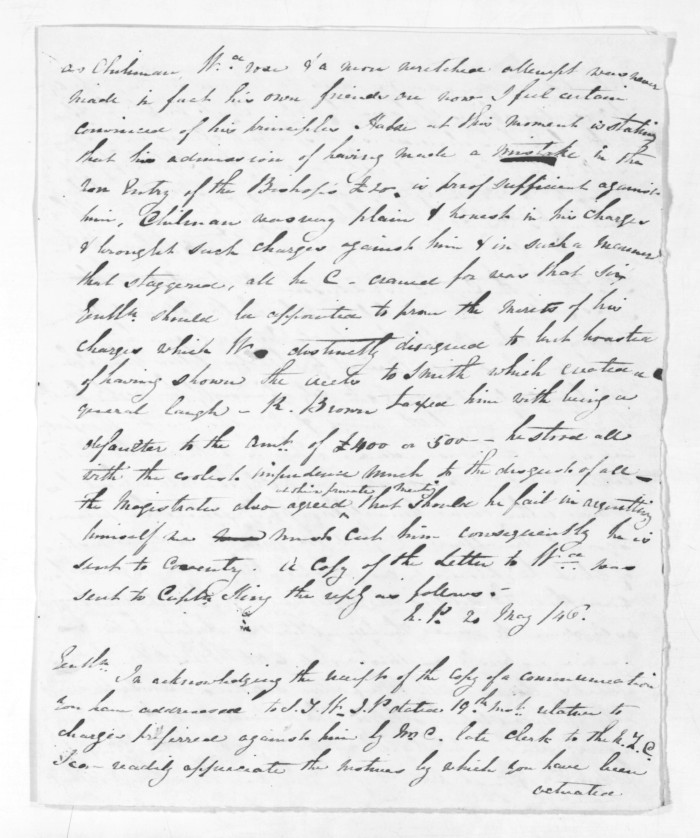 as Chilman, W.ce rose & a more wretched attempt was never
made in fact his own friends are now I feel certain
convinced of his principles Halse at this moment is stating
that his admission of having made a mistake in the
non Entry of the Bishop's £20. is proof sufficient against
him, Chilman was very plain & honest in his charges
& brought such charges against him & in such a manner
that staggered, all he C - craved for was that six
Gentln. should be appointed to prove the merits of his
charges which W. distinctly disagreed to but boasted
of having shown the accts to Smith which created a
general laugh - R. Brown taxed him with being a
defaulter to the amt. of £400 or 500 - he stood all
with the coolest impudence much to the disgust of all -
the Magistrates also agreed at their private Meetg that should he fail in acquitting
himself we must cut him consequently he is
sent to Coventry. A Copy of the Letter to W.ce was
sent to Captn King the reply as follows :-
N.P. 20 May /46.
Gentln.
In acknowledging the receipt of the copy of a communication
you have addressed to J.T.W. J.P dated 19th inst. relative to
charges preferred against him by Mr C. late clerk to the N.Z.C.
I can readily appreciate the motives by which you have been
actuated